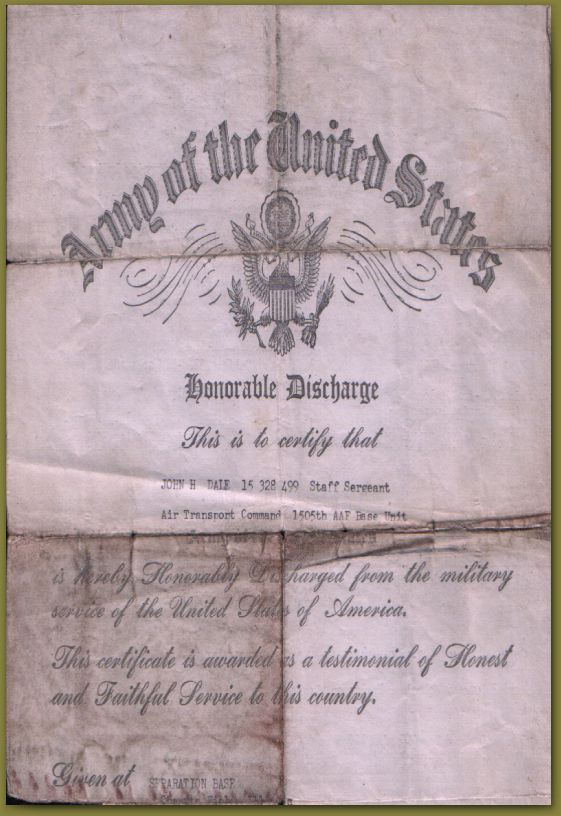 Army of the United States
Honorable Discharge
This is to certify that
JOHN H DALE 15 328 499 Staff Sergeant
Air Transport Command 1505th AAF Base Unit
is hereby Honorably Discharged from the military
service of the United States of America.
This certificate is awarded as a testimonial of Honest
and Faithful Service to this country.
Given at SEPARATION BASE